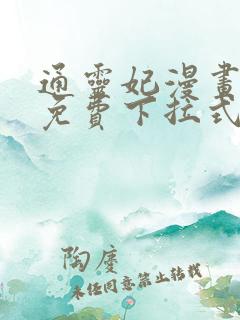 通靈妃漫畫
免費下拉式
陶慶
未经同意禁止转载